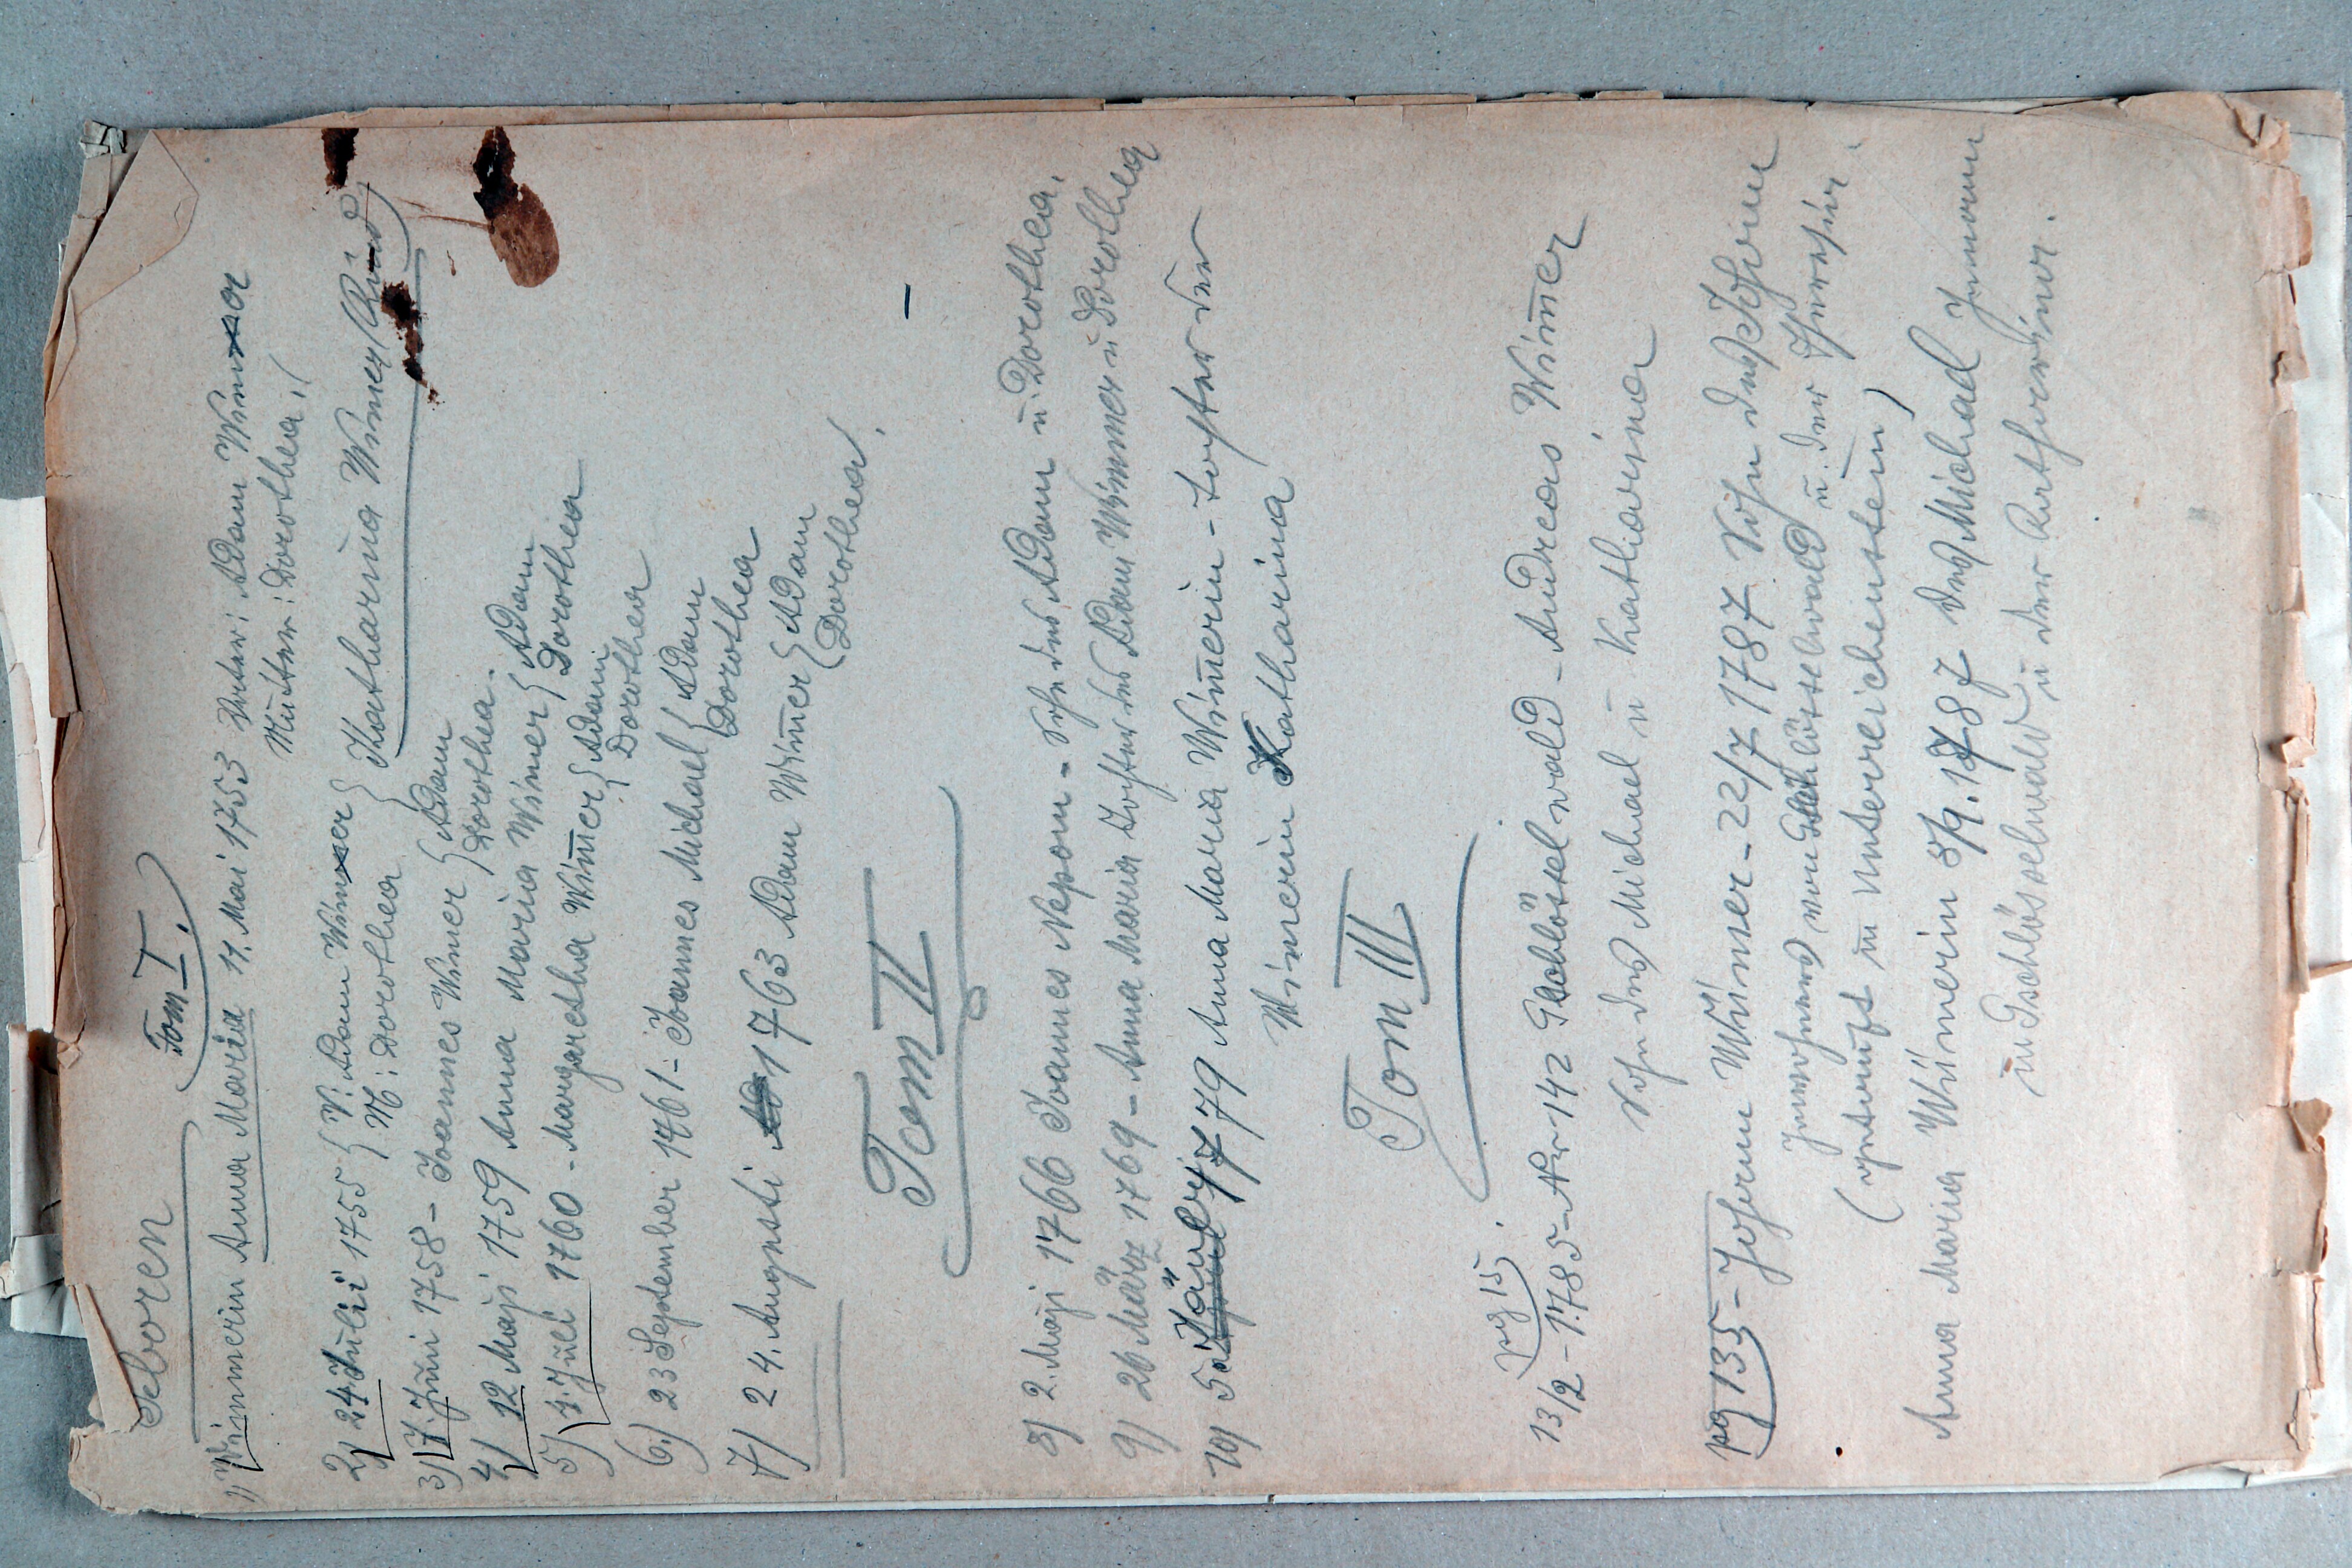 Geboren
Tom I.
1) Wimmerin Anna Maria 17. Mai 1753 Vater: Adam Wimmer
Mutter: Dorothea.
2) 24 Julii 1755 { V: Adam Wimmer } Katharina Wimer (Kind)
M: Dorothea
3) 7. Juni 1758 – Joannes Wimer { Adam
Dorothea.
4) 12 Maji 1759 Anna Maria Wimer { Adam
Dorothea
5) 1. Juli 1760 - Margaretha Wim̅er { Adam
Dorothea
6.) 23 September 1761 - Joannes Michael { Adam
Dorothea
7) 24. Augusti 1763 Adam Wim̅er { Adam
Dorothea.
Tom II
8) 2. Maji 1766 Joannes Nepom - Sohn des Adam u Dorothea.
9) 26 März 1769 - Anna Maria Tochter des Adam Wimmer u Dorothea
10) 5 Jäner 1779 Anna Maria Wim̅erin - Tochter der
Wimerin Katharina
Tom III
pag 15.
13/2 - 1785 - Nr 142 Gschlösselwald - Andreas Wim̅er
Sohn des Michael u Katharina
pg 135 - Johann Wim̅er - 22/7 1787 Sohn des Johann
Inwohners von Gschlösselwald u. der Theresia.
( in Unterreichenstein)
Anna Maria Wim̅erin 5/9. 1787 des Michael Inmann
in Gschlösselwald u der Katharina.